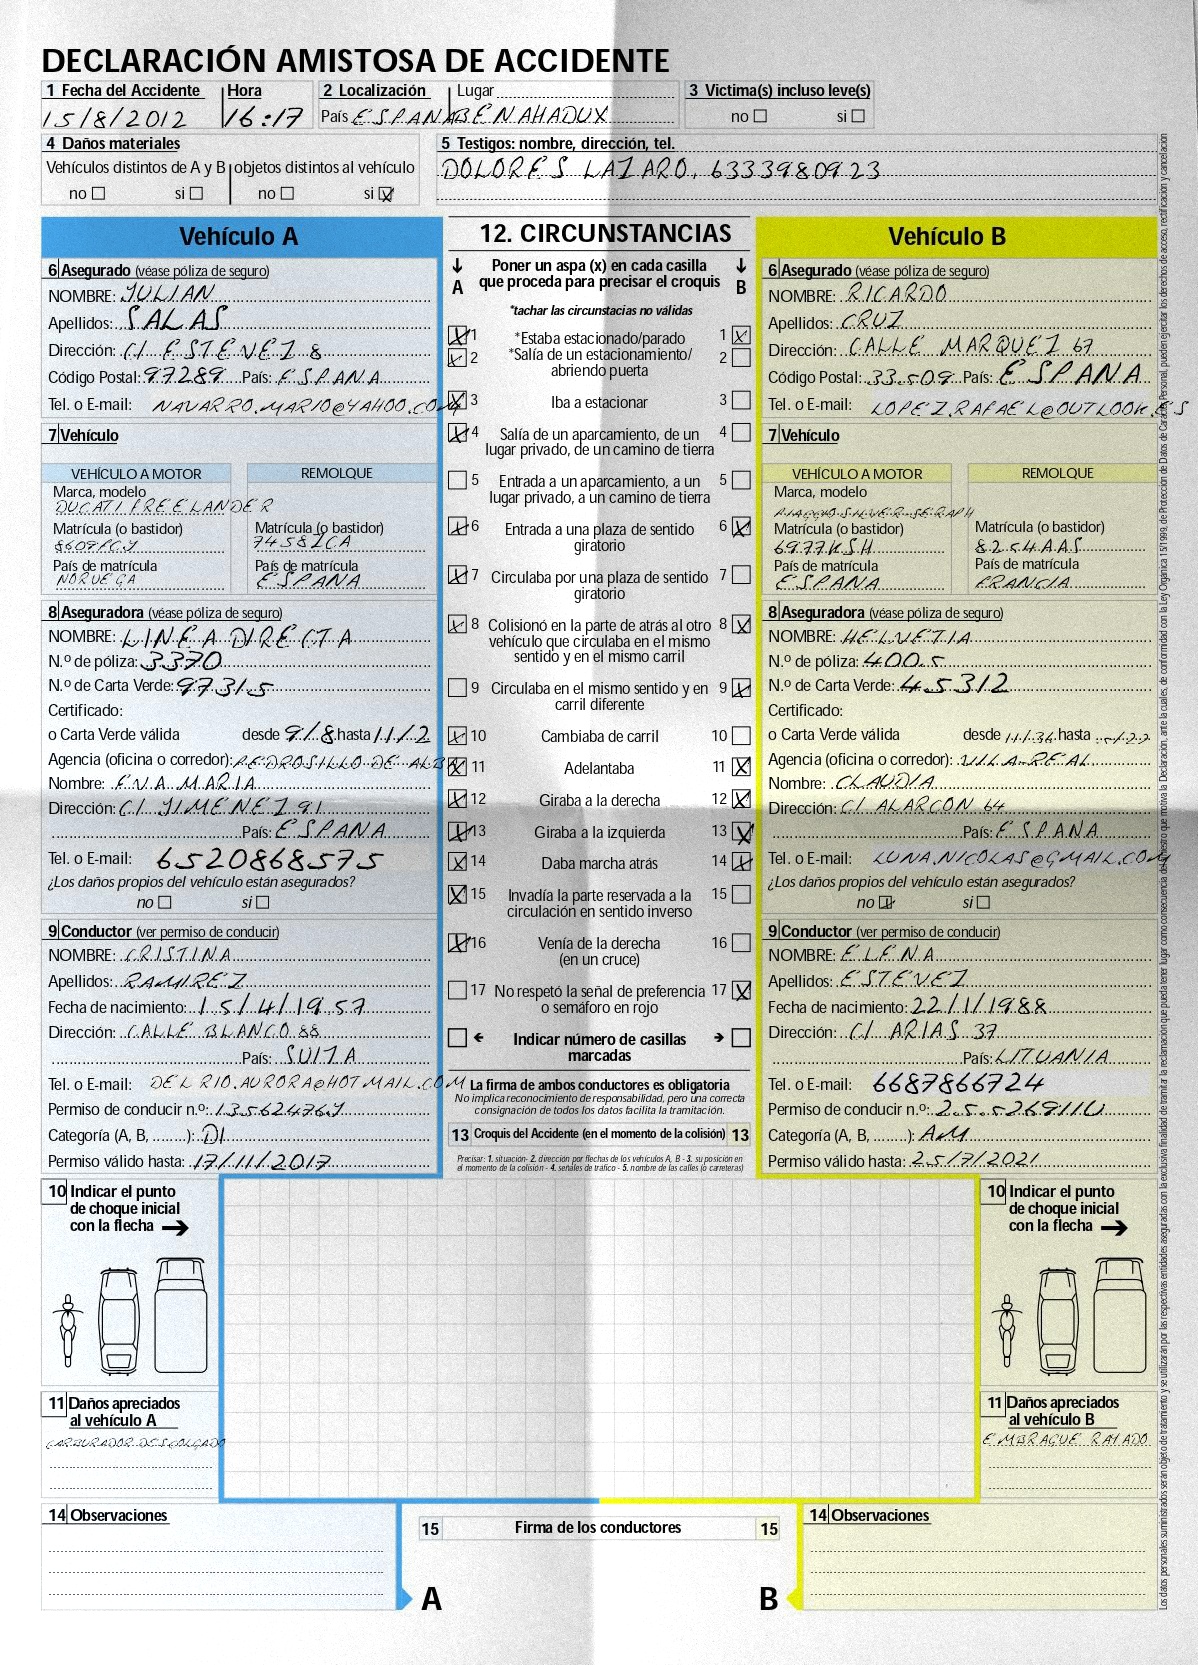 DECLARACIÓN AMISTOSA DE ACCIDENTE
1 Fecha del Accidente Hora 2 Localización Lugar 3 Victima(s) incluso leve(s)
15/8/2012 16:17 País ESPANA BENAHADUX no si
4 Daños materiales
Vehículos distintos de A y B objetos distintos al vehículo
no si no si X
5 Testigos: nombre, dirección, tel.
DOLORES LAZARO, 6333980923
Vehículo A
6 Asegurado (véase póliza de seguro)
NOMBRE: JULIAN
Apellidos: SALAS
Dirección: C/ ESTEVEZ 8
Código Postal: 97289 País: ESPANA
Tel. o E-mail: NAVARRO.MARIO@YAHOO.COM
7 Vehículo
VEHÍCULO A MOTOR REMOLQUE
Marca, modelo
DUCATI FREELANDER
Matrícula (o bastidor) Matrícula (o bastidor)
8609FCY 7458ICA
País de matrícula País de matrícula
NORUEGA ESPANA
8 Aseguradora (véase póliza de seguro)
NOMBRE: LINEA DIRECTA
N.º de póliza: 3370
N.º de Carta Verde: 97315
Certificado:
o Carta Verde válida desde 9/8 hasta 11/2
Agencia (oficina o corredor): PEDROSILLO DE ALBA
Nombre: EVA MARIA
Dirección: C/ JIMENEZ 91
País: ESPANA
Tel. o E-mail: 6520868575
¿Los daños propios del vehículo están asegurados?
no si
9 Conductor (ver permiso de conducir)
NOMBRE: CRISTINA
Apellidos: RAMIREZ
Fecha de nacimiento: 15/4/1957
Dirección: CALLE BLANCO 88
País: SUIZA
Tel. o E-mail: DELRIO.AURORA@HOTMAIL.COM
Permiso de conducir n.º: 13562476J
Categoría (A, B, ........): D1
Permiso válido hasta: 17/11/2017
12. CIRCUNSTANCIAS
A Poner un aspa (x) en cada casilla que proceda para precisar el croquis B
*tachar las circunstacias no válidas
X 1 *Estaba estacionado/parado 1 X
X 2 *Salía de un estacionamiento/ 2
abriendo puerta
X 3 Iba a estacionar 3
X 4 Salía de un aparcamiento, de un 4
lugar privado, de un camino de tierra
5 Entrada a un aparcamiento, a un 5
lugar privado, a un camino de tierra
X 6 Entrada a una plaza de sentido 6 X
giratorio
X 7 Circulaba por una plaza de sentido 7
giratorio
X 8 Colisionó en la parte de atrás al otro 8 X
vehículo que circulaba en el mismo
sentido y en el mismo carril
9 Circulaba en el mismo sentido y en 9 X
carril diferente
X 10 Cambiaba de carril 10
X 11 Adelantaba 11 X
X 12 Giraba a la derecha 12 X
X 13 Giraba a la izquierda 13 X
X 14 Daba marcha atrás 14 X
X 15 Invadía la parte reservada a la 15
circulación en sentido inverso
X 16 Venía de la derecha 16
(en un cruce)
17 No respetó la señal de preferencia 17 X
o semáforo en rojo
Indicar número de casillas
marcadas
La firma de ambos conductores es obligatoria
No implica reconocimiento de responsabilidad, pero una correcta
consignación de todos los datos facilita la tramitación.
13 Croquis del Accidente (en el momento de la colisión) 13
Precisar: 1. situación- 2. dirección por flechas de los vehículos A, B - 3. su posición en
el momento de la colisión - 4. señales de tráfico - 5. nombre de las calles (o carreteras)
Vehículo B
6 Asegurado (véase póliza de seguro)
NOMBRE: RICARDO
Apellidos: CRUZ
Dirección: CALLE MARQUEZ 67
Código Postal: 33509 País: ESPANA
Tel. o E-mail: LOPEZ.RAFAEL@OUTLOOK.ES
7 Vehículo
VEHÍCULO A MOTOR REMOLQUE
Marca, modelo
PIAGGIO SILVER SERAPH
Matrícula (o bastidor) Matrícula (o bastidor)
6977KSH 8254AAS
País de matrícula País de matrícula
ESPANA FRANCIA
8 Aseguradora (véase póliza de seguro)
NOMBRE: HELVETIA
N.º de póliza: 4005
N.º de Carta Verde: 45312
Certificado:
o Carta Verde válida desde hasta
Agencia (oficina o corredor): VILA-REAL
Nombre: CLAUDIA
Dirección: C/ ALARCON 64
País: ESPANA
Tel. o E-mail: LUNA.NICOLAS@GMAIL.COM
¿Los daños propios del vehículo están asegurados?
no X si
9 Conductor (ver permiso de conducir)
NOMBRE: ELENA
Apellidos: ESTEVEZ
Fecha de nacimiento: 22/1/1988
Dirección: C/ ARIAS 37
País: LITUANIA
Tel. o E-mail: 6687866724
Permiso de conducir n.º: 25526911U
Categoría (A, B, ........): AM
Permiso válido hasta: 25/7/2021
10 Indicar el punto
de choque inicial
con la flecha
11 Daños apreciados
al vehículo A
CARBURADOR DESCOLGADO
10 Indicar el punto
de choque inicial
con la flecha
11 Daños apreciados
al vehículo B
EMBRAGUE RAYADO
14 Observaciones
15 Firma de los conductores 15
A B
14 Observaciones